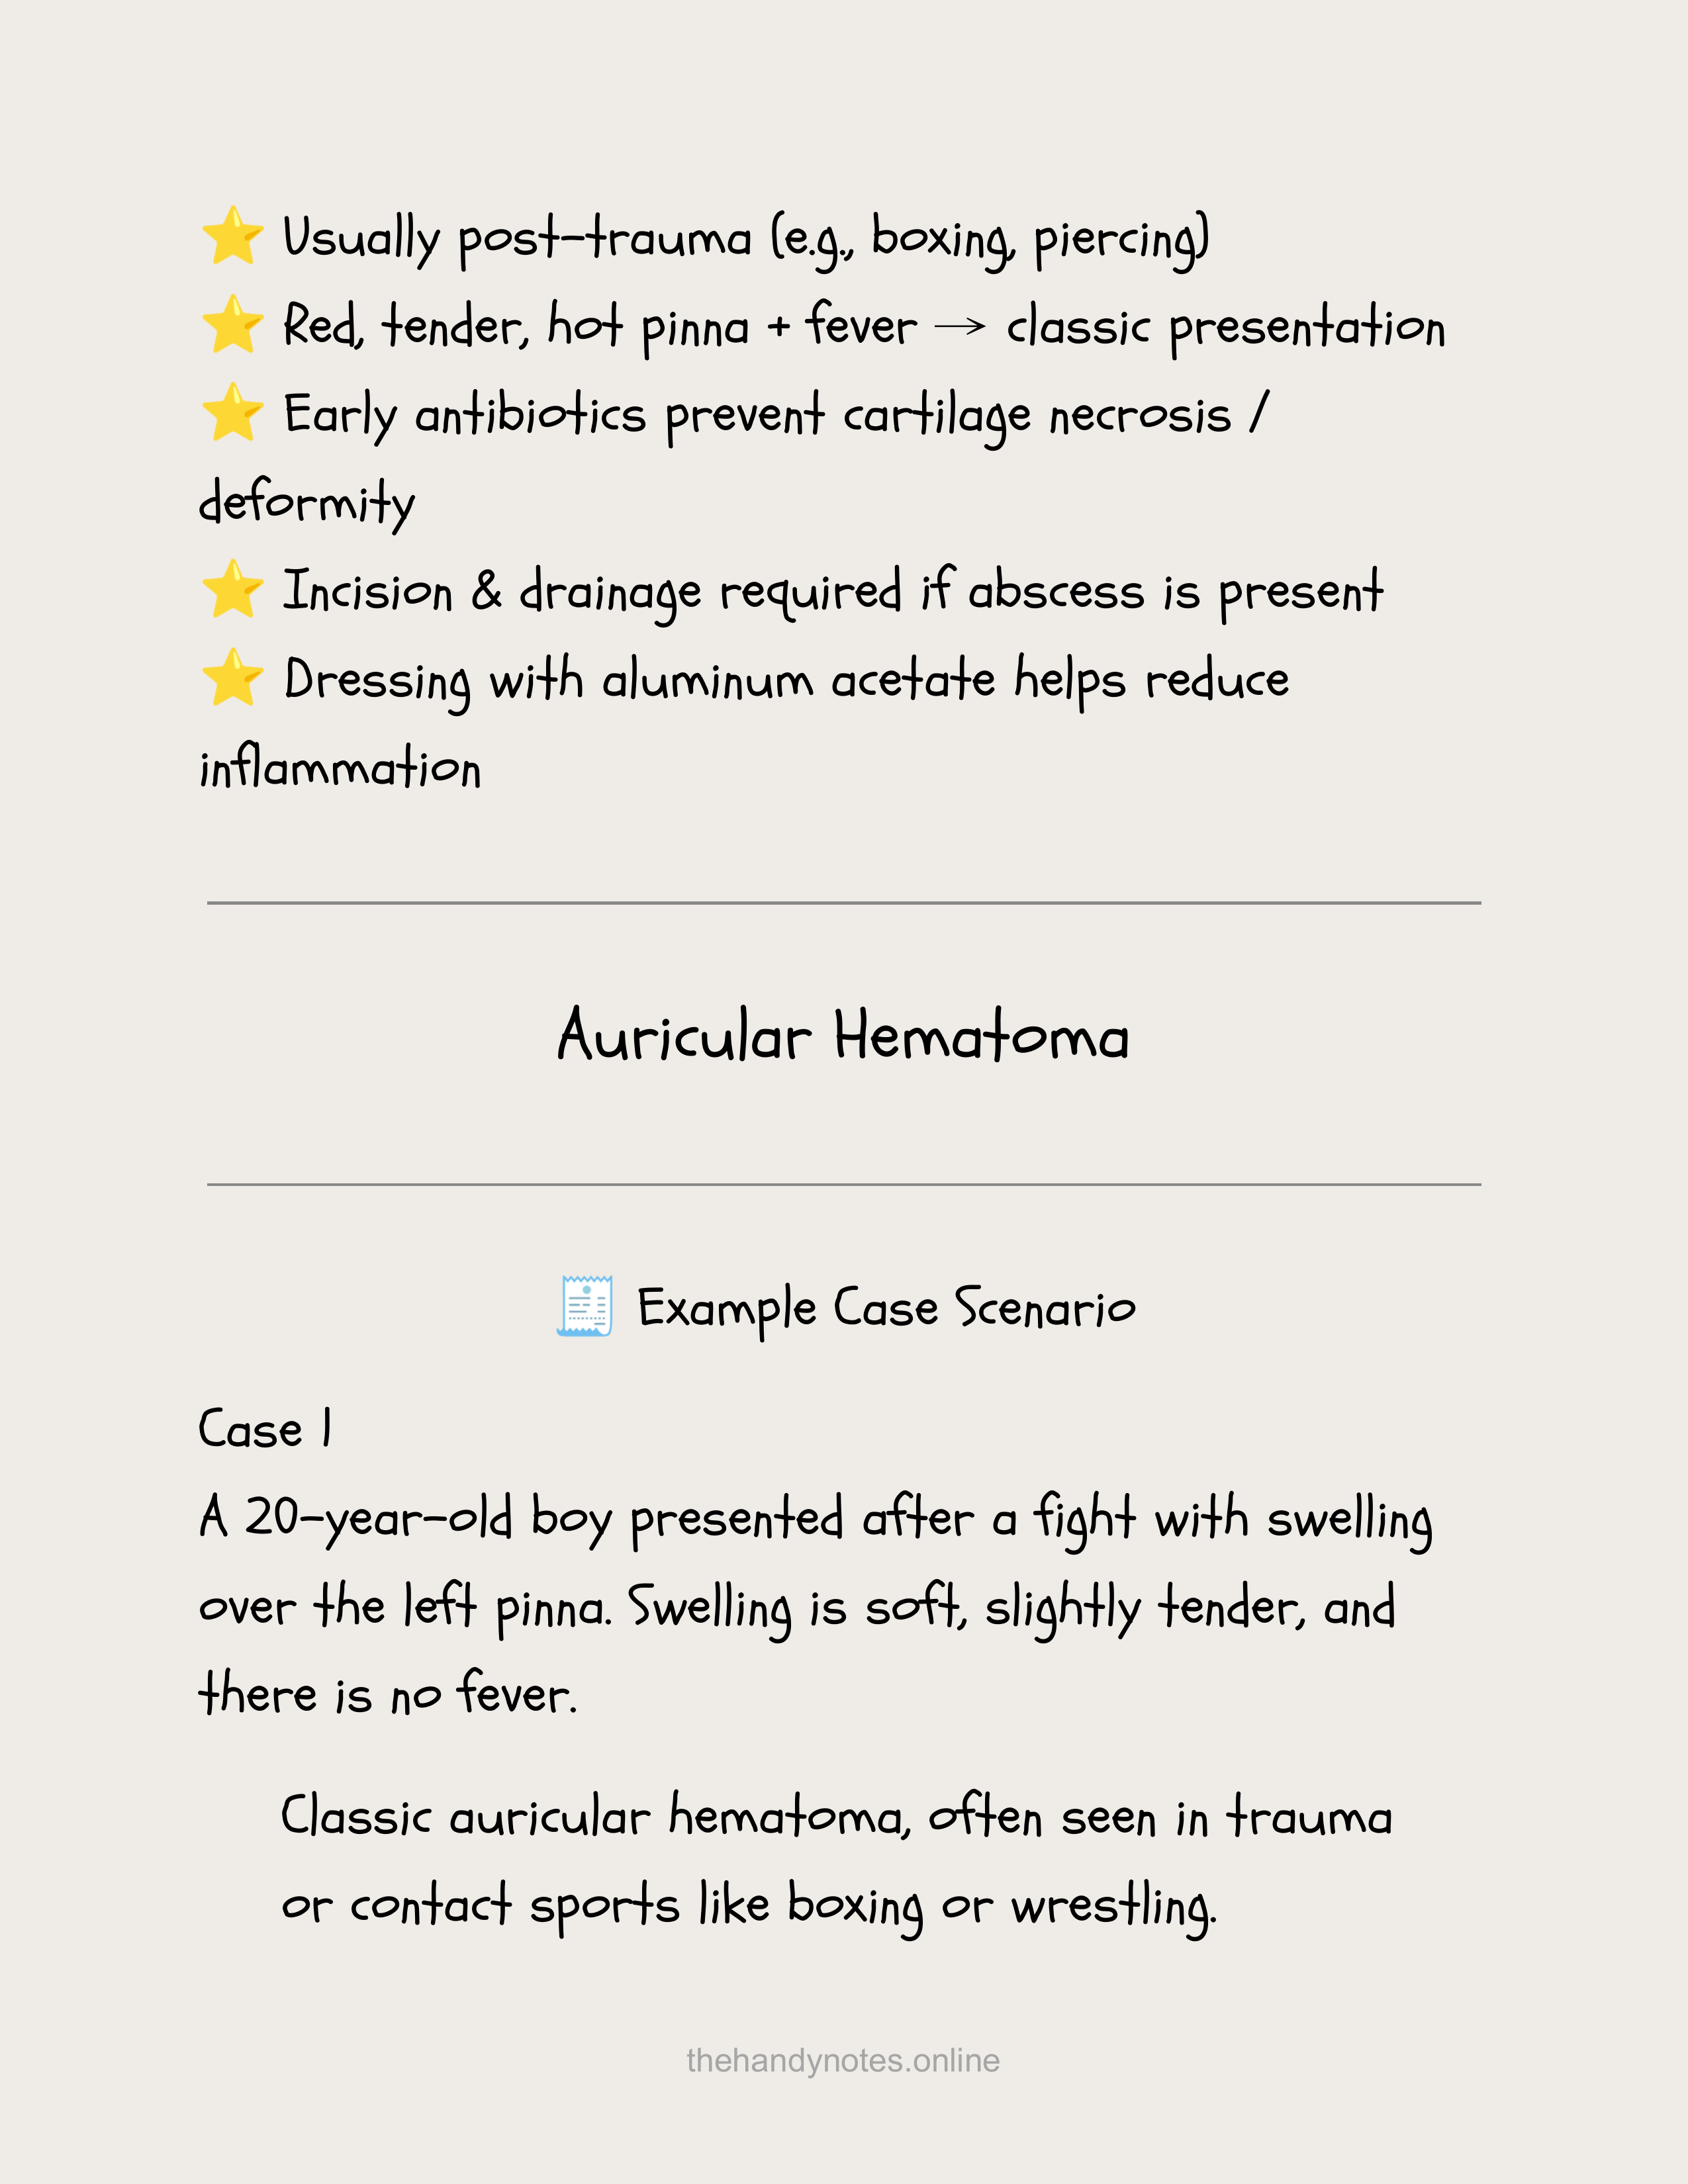 ⭐ Usually post-trauma (e.g., boxing, piercing)
⭐ Red, tender, hot pinna + fever → classic presentation
⭐ Early antibiotics prevent cartilage necrosis /
deformity
⭐ Incision & drainage required if abscess is present
⭐ Dressing with aluminum acetate helps reduce
inflammation
Auricular Hematoma
🧾 Example Case Scenario
Case 1
A 20-year-old boy presented after a fight with swelling
over the left pinna. Swelling is soft, slightly tender, and
there is no fever.
Classic auricular hematoma, often seen in trauma
or contact sports like boxing or wrestling.
thehandynotes.online